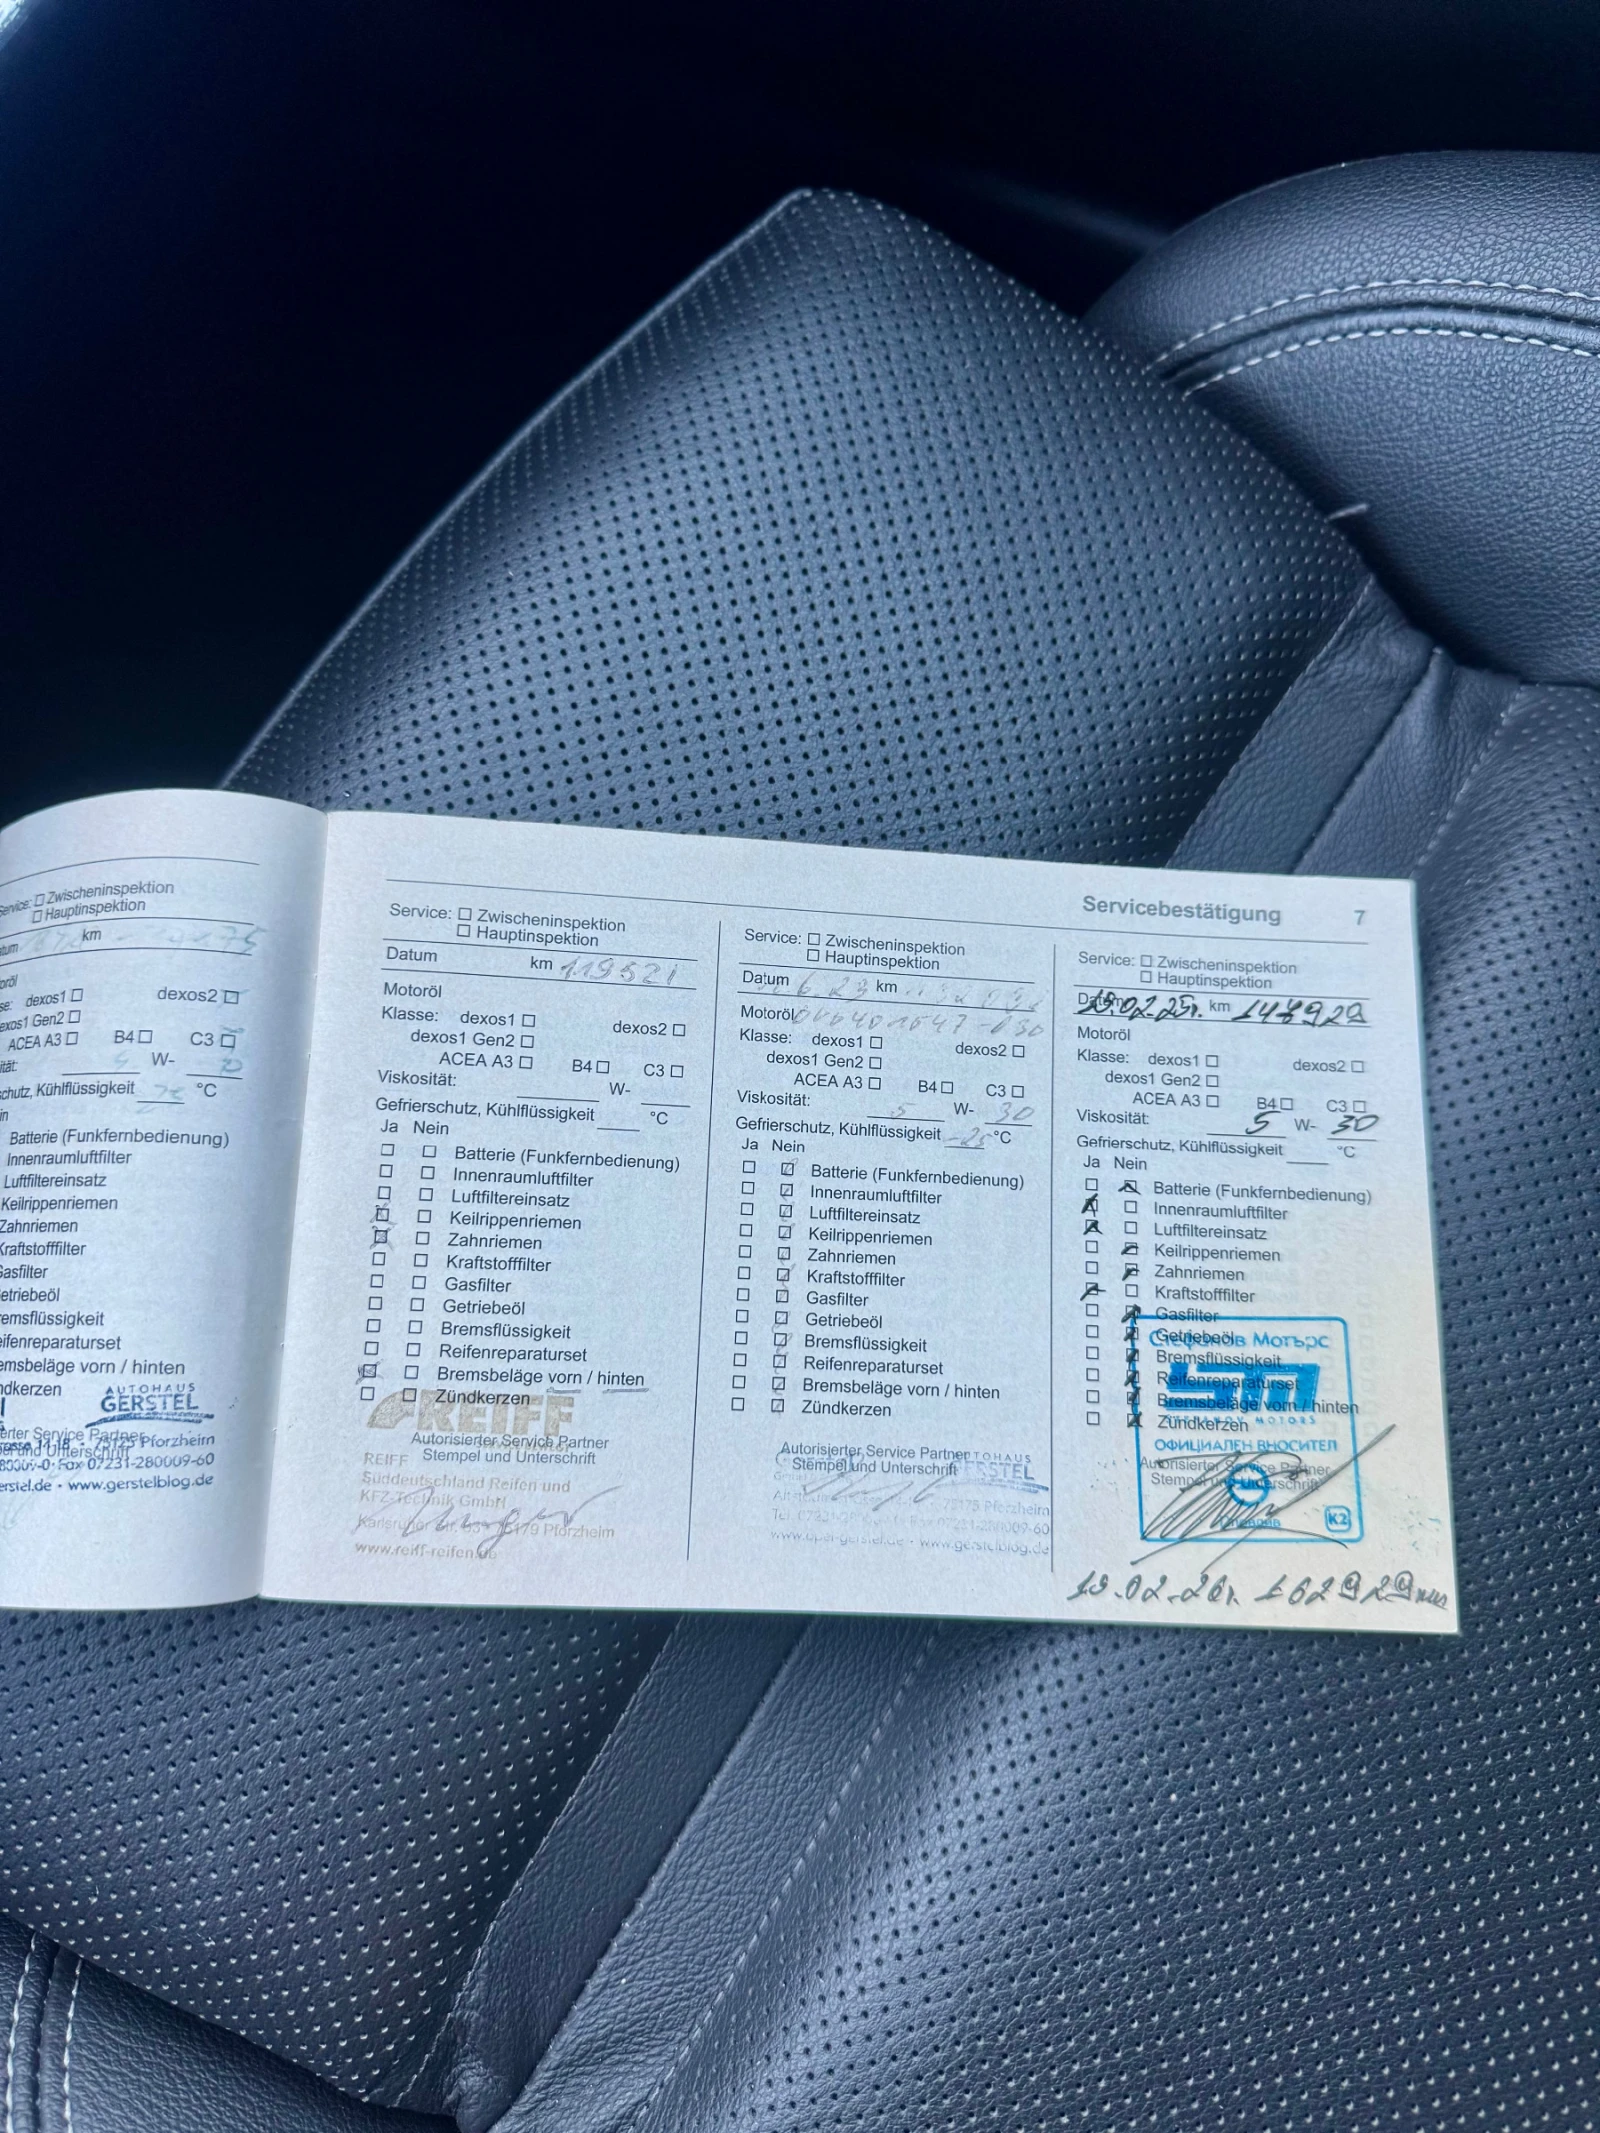 Service: Zwischeninspektion
Hauptinspektion
km
dexos1 dexos2
dexos1 Gen2
ACEA A3 B4 C3
W-
Kühlflüssigkeit °C
Batterie (Funkfernbedienung)
Innenraumluftfilter
Luftfiltereinsatz
Keilrippenriemen
Zahnriemen
Kraftstofffilter
Gasfilter
Getriebeöl
Bremsflüssigkeit
Reifenreparaturset
Bremsbeläge vorn / hinten
AUTOHAUS
GERSTEL
Service Partner
75175 Pforzheim
Fax 07231-280009-60
www.gerstelblog.de
Servicebestätigung 7
Service: Zwischeninspektion
Hauptinspektion
Datum km 119521
Motoröl
Klasse: dexos1 dexos2
dexos1 Gen2
ACEA A3 B4 C3
Viskosität: W-
Gefrierschutz, Kühlflüssigkeit °C
Ja Nein
Batterie (Funkfernbedienung)
Innenraumluftfilter
Luftfiltereinsatz
Keilrippenriemen
Zahnriemen
Kraftstofffilter
Gasfilter
Getriebeöl
Bremsflüssigkeit
Reifenreparaturset
Bremsbeläge vorn / hinten
Zündkerzen
REIFF
Autorisierter Service Partner
Stempel und Unterschrift
REIFF
Süddeutschland Reifen und
KFZ-Technik GmbH
Karlsruher Str. 75179 Pforzheim
www.reiff-reifen.de
Service: Zwischeninspektion
Hauptinspektion
Datum km
Motoröl
Klasse: dexos1 dexos2
dexos1 Gen2
ACEA A3 B4 C3
Viskosität: 5 W- 30
Gefrierschutz, Kühlflüssigkeit -25 °C
Ja Nein
Batterie (Funkfernbedienung)
Innenraumluftfilter
Luftfiltereinsatz
Keilrippenriemen
Zahnriemen
Kraftstofffilter
Gasfilter
Getriebeöl
Bremsflüssigkeit
Reifenreparaturset
Bremsbeläge vorn / hinten
Zündkerzen
Autorisierter Service Partner
Stempel und Unterschrift
75175 Pforzheim
www.opel-gerstel.de • www.gerstelblog.de
Service: Zwischeninspektion
Hauptinspektion
Datum 02.25г. km
Motoröl
Klasse: dexos1 dexos2
dexos1 Gen2
ACEA A3 B4 C3
Viskosität: 5 W- 30
Gefrierschutz, Kühlflüssigkeit °C
Ja Nein
Batterie (Funkfernbedienung)
Innenraumluftfilter
Luftfiltereinsatz
Keilrippenriemen
Zahnriemen
Kraftstofffilter
Gasfilter
Getriebeöl
Bremsflüssigkeit
Reifenreparaturset
Bremsbeläge vorn / hinten
Zündkerzen
Стефанов Мотърс
MOTORS
ОФИЦИАЛЕН ВНОСИТЕЛ
Autorisierter Service Partner
Stempel und Unterschrift
K2
19.02.26г. 162929